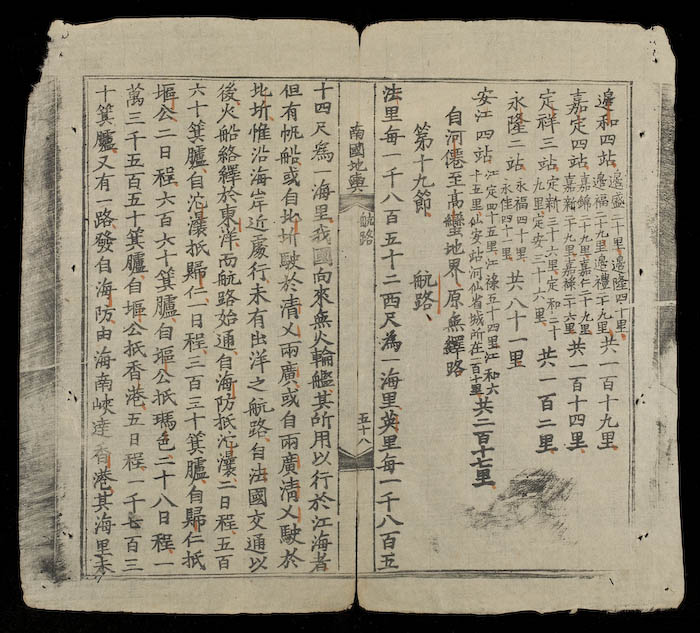 邊和四站 邊盛二十里邊隆四十里 邊福二十九里邊禮二十九里 共一百十九里
嘉定四站 嘉錦二十九里嘉仁二十九里 嘉新二十九里嘉綠二十六里 共一百十四里
定祥三站 定新三十六里定和三十 九里定安三十六里 共一百二里
永隆二站 永福四十里 永佳四十一里 共八十一里
安江四站 江定四十五里江祿五十四里江和六 十五里仙安站河仙省城所在百十里 共二百十七里
自河僊至高蠻地界原無驛路
第十九節 航路
法里每一千八百五十二西尺為一海里英里每一千八百五
南國地輿 航路 五十八
十四尺為一海里我國向來無火輪艦其所用以行於江海者
但有帆船或自北圻駛於清乂兩廣或自兩廣清乂駛於
北圻惟沿海岸近處行未有出洋之航路自法國交通以
後火船絡繹於東洋而航路始通自海防抵沱灢二日程五百
六十箕臚自沱灢抵歸仁一日程三百三十箕臚自歸仁抵
堛公二日程六百六十箕臚自堛公抵瑪色二十八日程一
萬三千五百五十箕臚自堛公抵香港五日程一千七百三
十箕臚又有一路發自海防由海南峽達香港其海里未